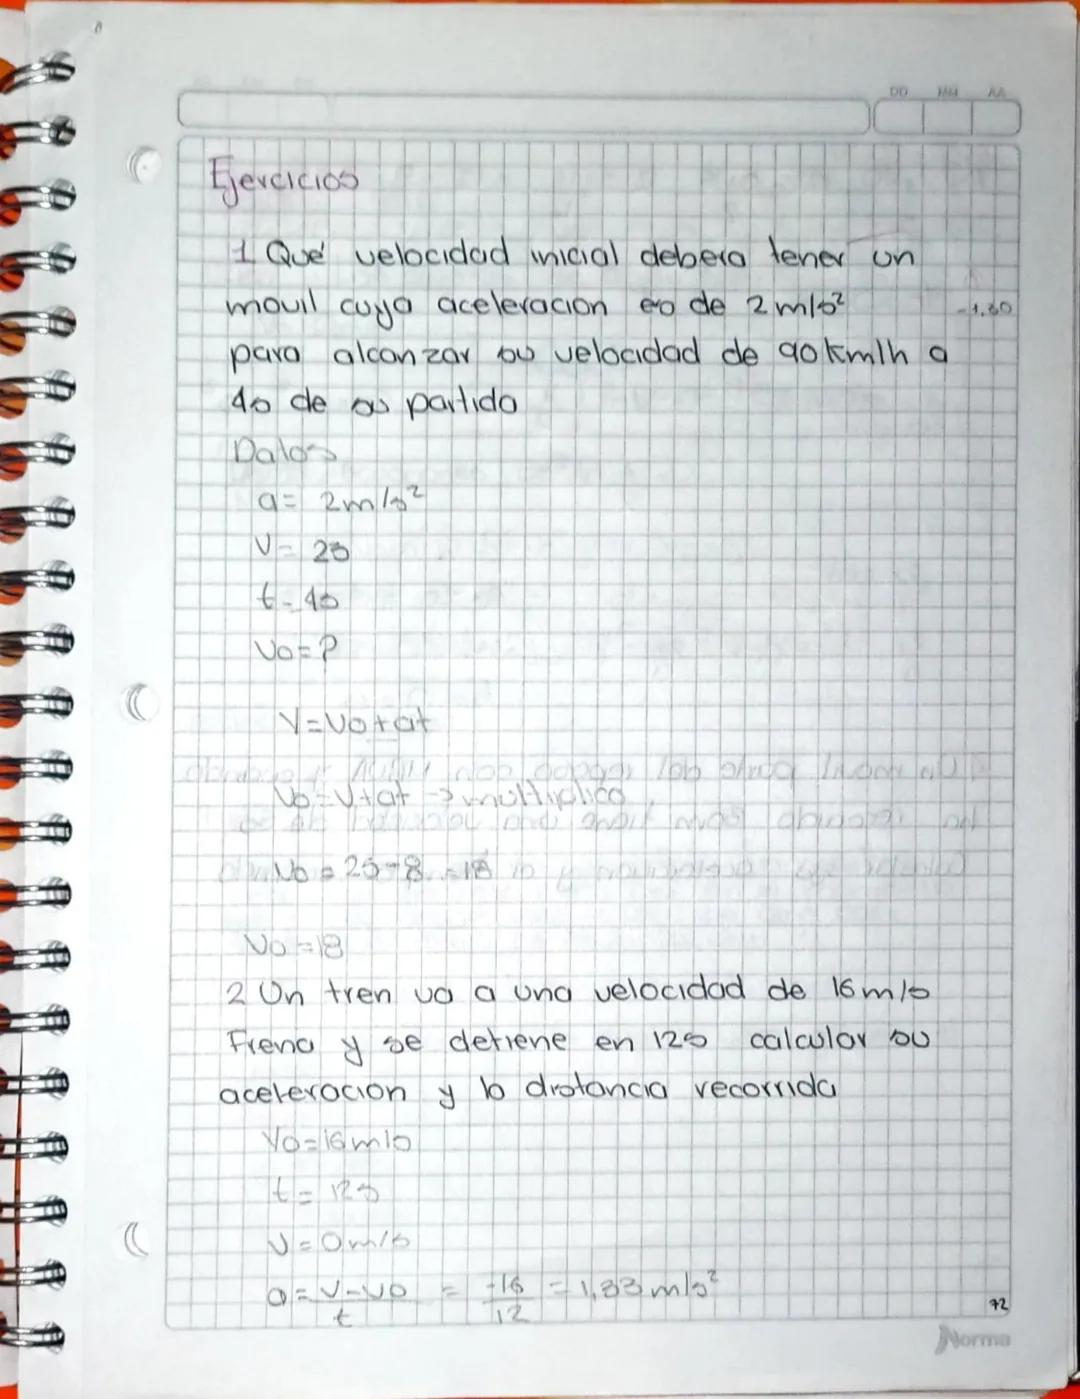 DD MM AA
Ejercicios
1 Qué velocidad inicial debera tener un
movil cuya aceleracion es de 2m/s²
-1.60
para alcanzar su velocidad de 90km/h a
4s de su partida
Datos
a= 2m/s²
V= 25
t- 4s
Vo=?
V=Vo+at
Vo=V+at → multiplico
Vo = 25-8 = 18
Vo =18
2 Un tren va a una velocidad de 16m/s
Frena y se detiene en 12s calcular su
aceleracion y la distancia recorrida
Vo=16m/s
t= 12s
V=0m/s
a= V-Vo = -16 = 1,33 m/s²
t 12
72
Norma